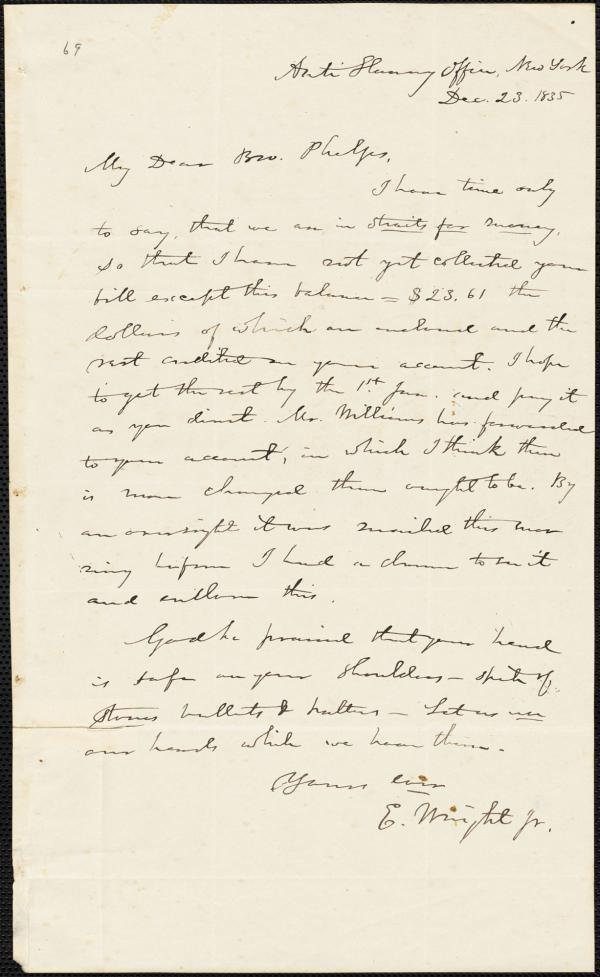 69
Anti Slavery Office, New York
Dec. 23. 1835
My Dear Bro. Phelps,
I have time only
to say, that we are in straits for money,
so that I have not yet collected your
bill except this balance = $23.61 the
dollars of which are enclosed and the
rest credited on your account. I hope
to get the rest by the 1st Jan. and pay it
as you direct. Mr. Williams has forwarded
to your account, in which I think there
is more charged than ought to be. By
an oversight it was mailed this mor
ning before I had a chance to see it
and enclose this.
God be praised that your head
is safe on your shoulders – spite of
stones bullets & halters – Let us use
our heads while we have them.
Yours ever
E. Wright Jr.